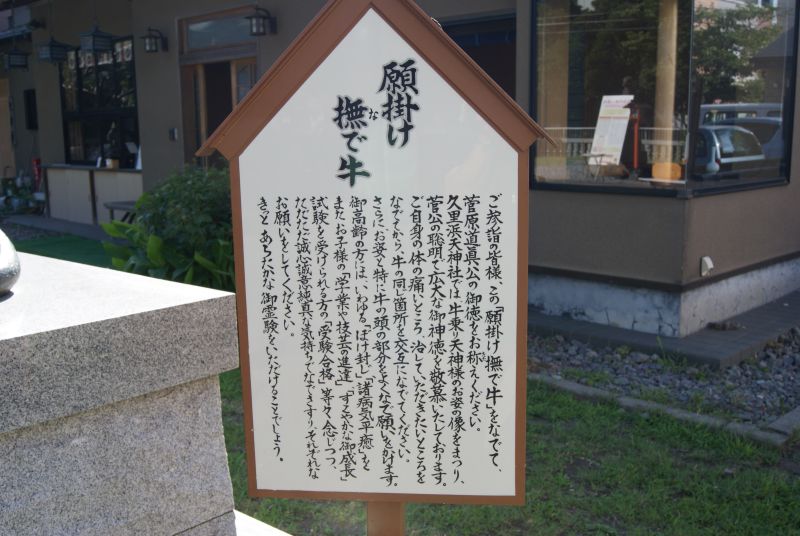 願掛け
撫で牛
な
ご参詣の皆様、この「願掛け撫で牛」をなでて、
菅原道真公の御徳をお称えください。
久里浜天神社では牛乗り天神様のお姿の像をまつり、
菅公の聡明で広大な御神徳を敬慕いたしております。
ご自身の体の痛いところ、治していただきたいところを
なでてから、牛の同じ箇所を交互になでてください。
さらに、お姿の特に牛の頭の部分をよくなで願いをかけます。
御高齢の方には、いわゆる「ぼけ封じ」「諸病気平癒」を
またお子様の「学業や技芸の進達」「すこやかな御成長」
試験を受けられる方の「受験合格」等々、念じつつ、
ただただ誠心誠意純真な気持ちでなでさすり、それぞれな
お願いをしてください。
きっとあらたかな御霊験をいただけることでしょう。